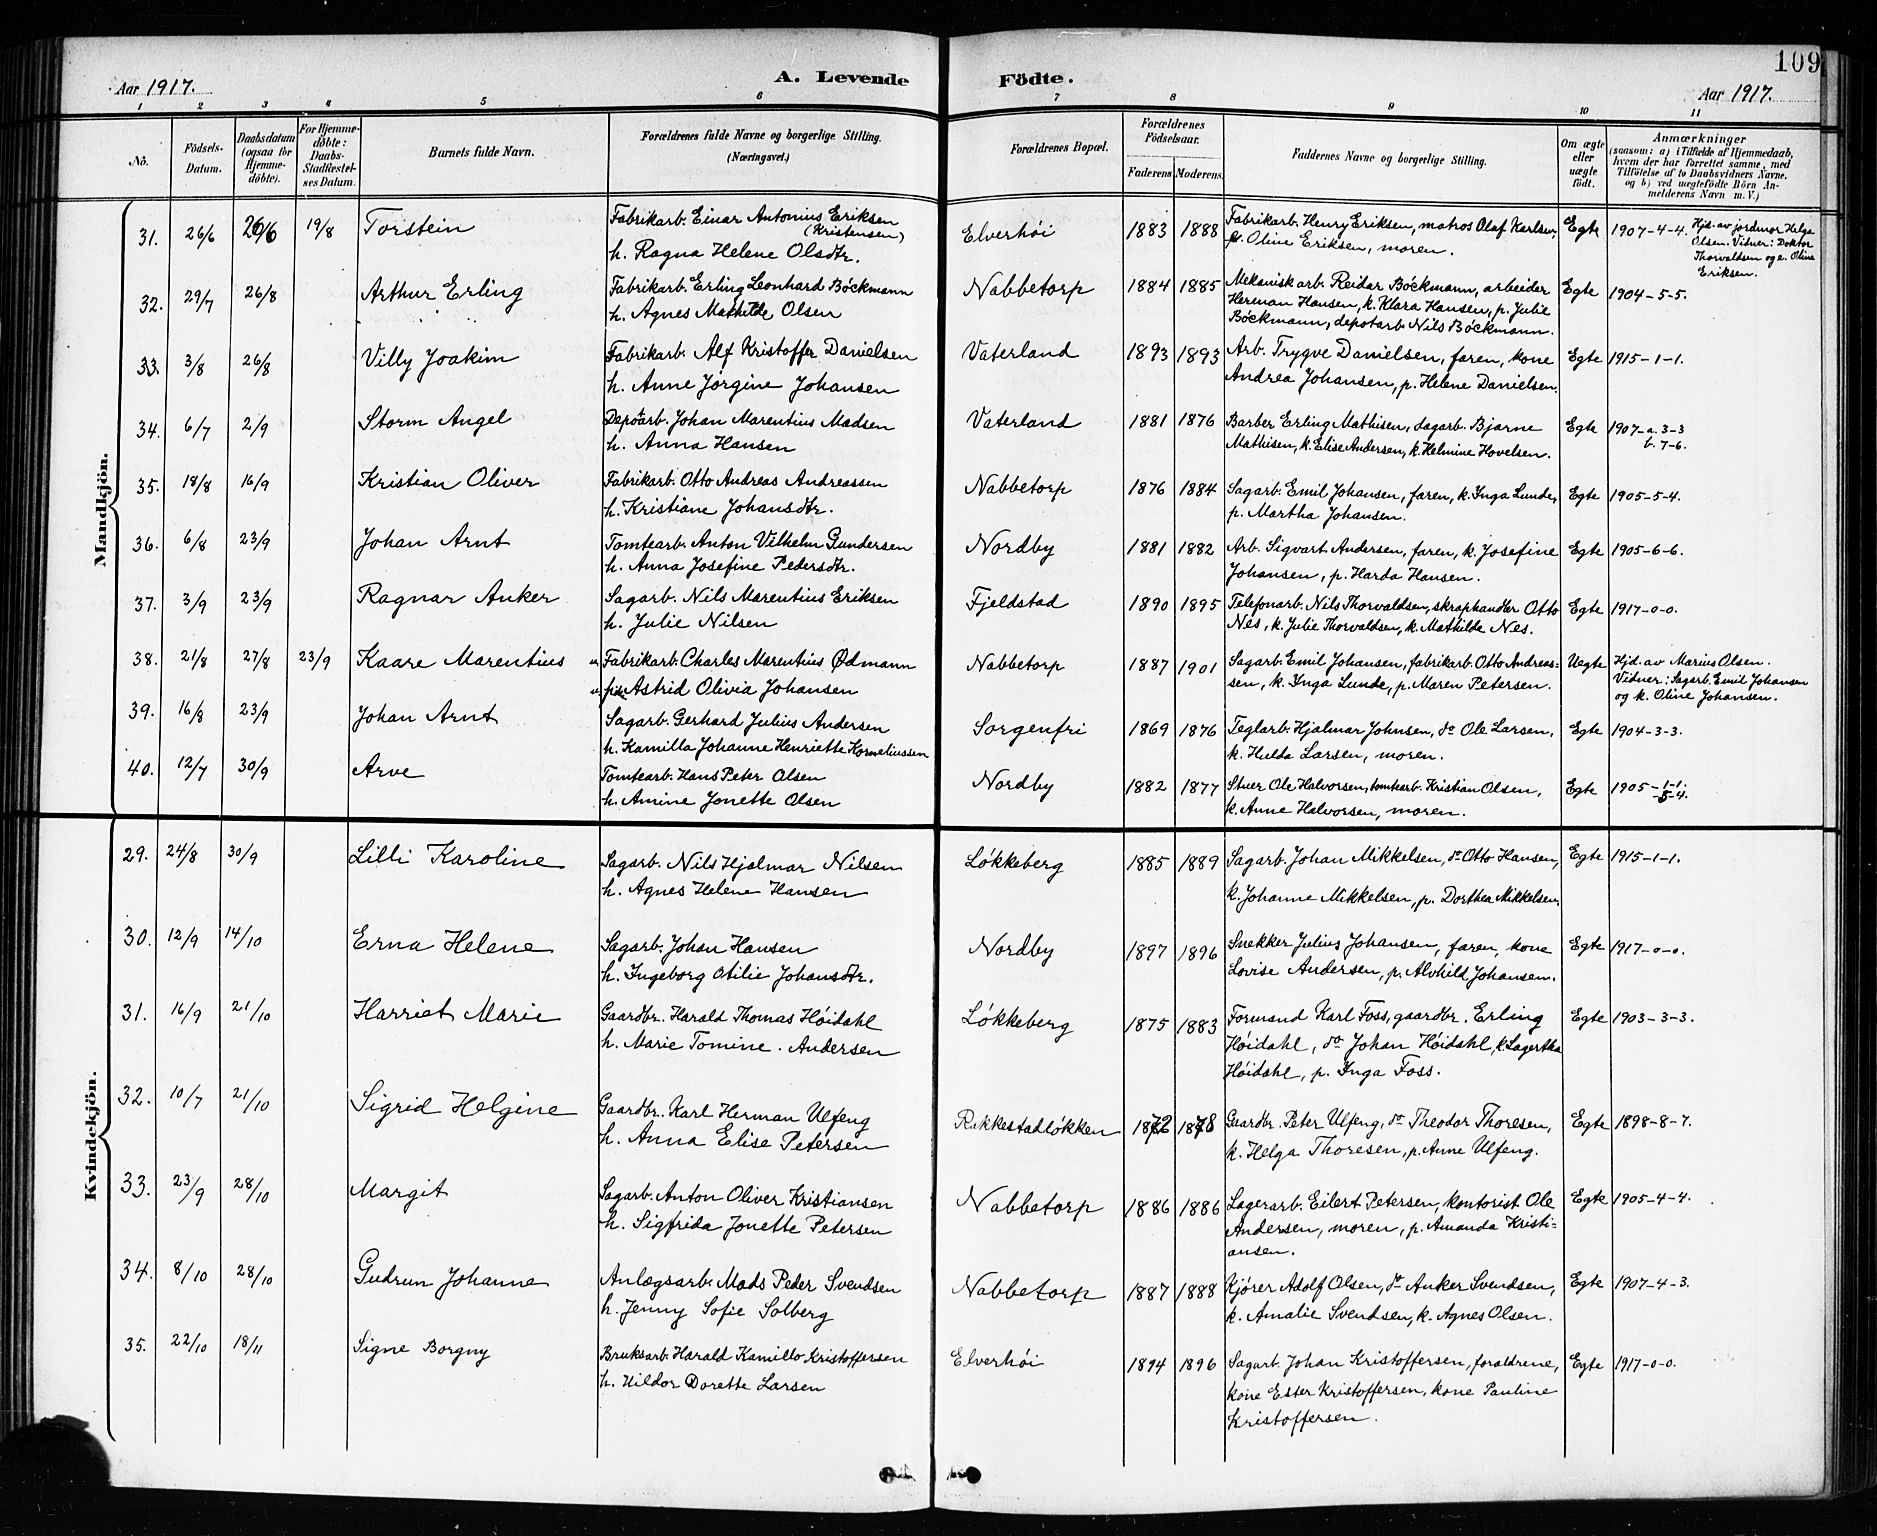 109
Aar 1917. A. Levende Födte. Aar 1917.
1 2 3 4 5 6 7 8 9 10 11
No. Födsels-Datum. Daabsdatum (ogsaa for Hjemmedöbte). For Hjemmedöbte: Daabs-Stadfæstelses Datum. Barnets fulde Navn. Forældrenes fulde Navne og borgerlige Stilling. (Næringsvei.) Forældrenes Bopæl. Forældrenes Födselsaar. Faderens Moderens. Faddernes Navne og borgerlige Stilling. Om ægte eller uægte födt. Anmærkninger (saasom: a) i Tilfælde af Hjemmedaab, hvem der har forrettet samme, med Tilföielse af to Daabsvidners Navne, og b) ved uægtefödte Börn Anmelderens Navn m. V.)
Mandkjön.
31. 26/6 26/6 19/8 Torstein Fabrikarb. Einar Antonius Eriksen (Kristensen) Elverhöi 1883 1888 Fabrikarb. Henry Eriksen, matros Olaf Karlsen, Egte 1907-4-4. Hjd. av jordmor Helga
h. Ragna Helene Olsdtr. Oline Eriksen, moren. Olsen. Vidner: Doktor
Thorvaldsen og e. Oline
Eriksen.
32. 29/7 26/8 Arthur Erling Fabrikarb. Erling Leonhard Böckmann Nabbetorp 1884 1885 Mekanisk arb. Reidar Böckmann, arbeider Egte 1904-5-5.
h. Agnes Mathilde Olsen Herman Hansen, k. Klara Hansen, p. Julie
Böckmann, depotarb. Nils Böckmann.
33. 3/8 26/8 Villy Joakim Fabrikarb. Alf Kristoffer Danielsen Vaterland 1893 1893 Arb. Trygve Danielsen, faren, kone Egte 1915-1-1.
h. Anne Jörgine Johansen Andrea Johansen, p. Helene Danielsen.
34. 6/7 2/9 Storm Angel Depotarb. Johan Marentius Madsen Vaterland 1881 1876 Barber Erling Mathisen, sagarb. Bjarne Egte 1907-a. 3-3
h. Anna Hansen Mathisen, k. Elise Andersen, k. Helmine Hovelsen. b. 7-6.
35. 18/8 16/9 Kristian Oliver Fabrikarb. Otto Andreas Andreassen Nabbetorp 1876 1884 Sagarb. Emil Johansen, faren, k. Inga Lunde, Egte 1905-5-4.
h. Kristiane Johansdtr. p. Martha Johansen.
36. 6/8 23/9 Johan Arnt Tomtearb. Anton Vilhelm Gundersen Nordby 1881 1882 Arb. Sigvart Andersen, faren, k. Josefine Egte 1905-6-6.
h. Anna Josefine Pedersdtr. Johansen, p. Harda Hansen.
37. 3/9 23/9 Ragnar Anker Sagarb. Nils Marentius Eriksen Fjeldstad 1890 1895 Telefonarb. Nils Thorvaldsen, skraphandler Otto Egte 1917-0-0.
h. Julie Nilsen Nes, k. Julie Thorvaldsen, k. Mathilde Nes.
38. 21/8 27/8 23/9 Kaare Marentius u. Fabrikarb. Charles Marentius Ødmann Nabbetorp 1887 1901 Sagarb. Emil Johansen, fabrikarb. Otto Andreas= Uegte Hjd. av Marius Olsen.
u. pike Astrid Olivia Johansen sen, k. Inga Lunde, p. Maren Petersen. Vidner: Sagarb. Emil Johansen
og k. Oline Johansen.
39. 16/8 23/9 Johan Arnt Sagarb. Gerhard Julius Andersen Sorgenfri 1869 1876 Teglarb. Hjalmar Johnsen, do Ole Larsen, Egte 1904-3-3.
h. Kamilla Johanne Henriette Korneliussen k. Hulda Larsen, moren.
40. 12/7 30/9 Arve Tomtearb. Hans Peter Olsen Nordby 1882 1877 Stuer Ole Halvorsen, tomtearb. Kristian Olsen, Egte 1905-1-1.
h. Amine Jonette Olsen k. Anne Halvorsen, moren. -5-4.
Kvindekjön.
29. 24/8 30/9 Lilli Karoline Sagarb. Nils Hjalmar Nilsen Lökkeberg 1885 1889 Sagarb. Johan Mikkelsen, do Otto Hansen, Egte 1915-1-1.
h. Agnes Helene Hansen k. Johanne Mikkelsen, p. Dorthea Mikkelsen.
30. 12/9 14/10 Erna Helene Sagarb. Johan Hansen Nordby 1897 1896 Snekker Julius Johansen, faren, kone Egte 1917-0-0.
h. Ingeborg Otilie Johansdtr. Lovise Andersen, p. Alvhild Johansen.
31. 16/9 21/10 Harriet Marie Gaardbr. Harald Thomas Höidahl Lökkeberg 1875 1883 Formand Karl Foss, gaardbr. Erling Egte 1903-3-3.
h. Marie Tomine Andersen Höidahl, do Johan Höidahl, k. Lagertha
Höidahl, p. Inga Foss.
32. 10/7 21/10 Sigrid Helgine Gaardbr. Karl Herman Ulfeng Rækkestadlökken 1872 1878 Gaardbr. Peter Ulfeng, do Theodor Thoresen, Egte 1898-8-7.
h. Anna Elise Petersen k. Helga Thoresen, p. Anne Ulfeng.
33. 23/9 28/10 Margit Sagarb. Anton Oliver Kristiansen Nabbetorp 1886 1886 Lagerarb. Eilert Petersen, kontorist Ole Egte 1905-4-4.
h. Sigfrida Jonette Petersen Andersen, moren, p. Amanda Kristi=
ansen.
34. 8/10 28/10 Gudrun Johanne Anlægsarb. Mads Peder Svendsen Nabbetorp 1887 1888 Kjörer Adolf Olsen, do Anker Svendsen, Egte 1907-4-3.
h. Jenny Sofie Solberg k. Amalie Svendsen, k. Agnes Olsen.
35. 22/10 18/11 Signe Borgny Bruksarb. Harald Kamillo Kristoffersen Elverhöi 1894 1896 Sagarb. Johan Kristoffersen, forældrene, Egte 1917-0-0.
h. Hildor Dorette Larsen kone Ester Kristoffersen, kone Pauline
Kristoffersen.